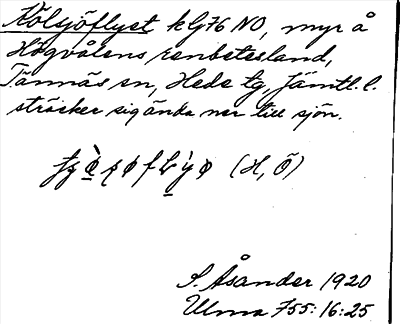 Kölsjöflyet k G76 NO, myr å
Högvålens renbetesland,
Tännäs sn, Hede tg, Jämtl. l.
sträcker sig ända ner till sjön.
(H, Ö)
S. Åsander 1920
Ulma 755:16:25